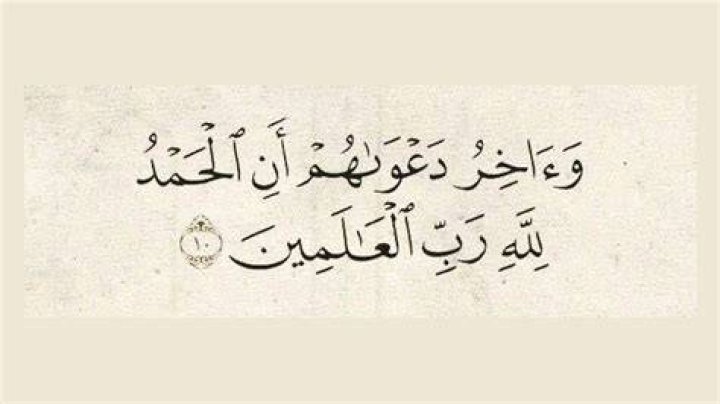 وَءَاخِرُ دَعْوَىٰهُمْ أَنِ ٱلْحَمْدُ
لِلَّهِ رَبِّ ٱلْعَـٰلَمِينَ ١٠